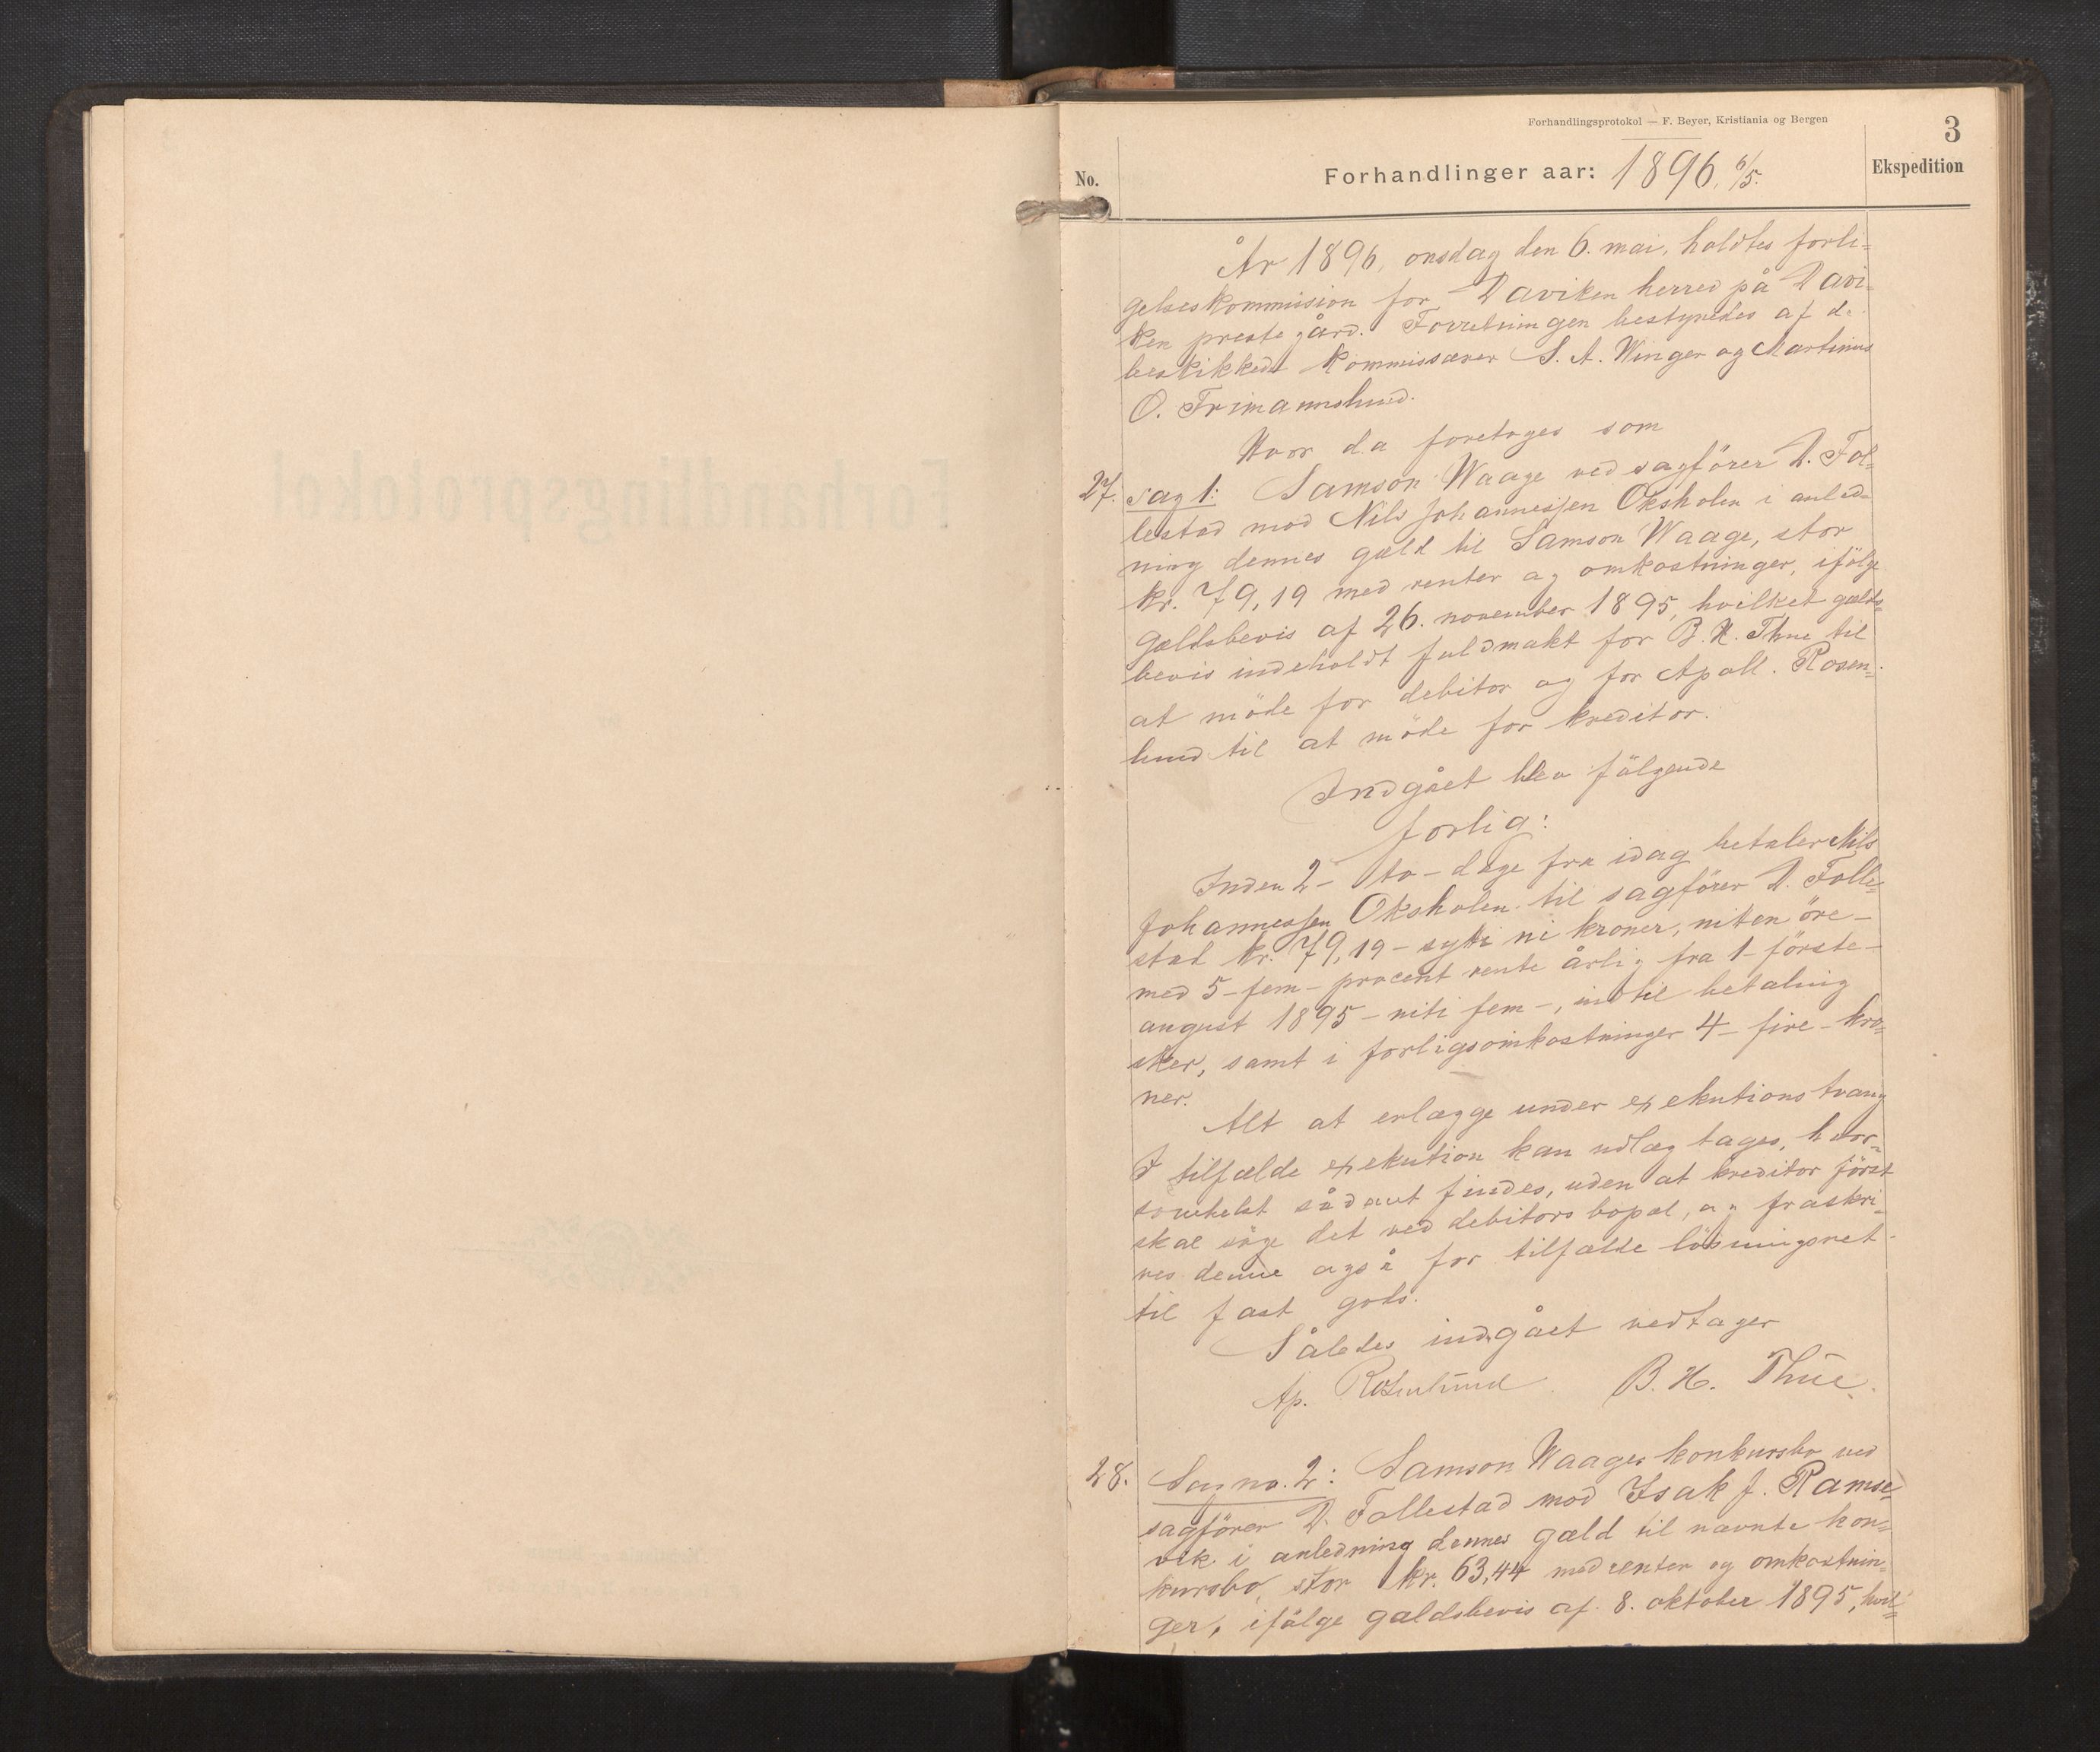 Forhandlingsprotokol — F. Beyer, Kristiania og Bergen
3
No.
Forhandlinger aar: 1896, 6/5.
Ekspedition
År 1896, onsdag den 6. mai, holdtes forli-
gelseskommision for Daviken herred på Davi-
ken prestegård. Forretningen bestyredes af de
beskikkede kommissærer S. A. Winger og Martinus
O. Frimannslund.
Hvor da foretoges som
27. sag 1: Samson Waage ved sagförer D. Fol-
lestad mod Nils Johannessen Oksholen i anled-
ning dennes gæld til Samson Waage, stor
kr. 79,19 med renter og omkostninger, ifölge
gældsbevis af 26. november 1895, hvilket gælds-
bevis indeholdt fuldmakt for B. H. Thue til
at möde for debitor og for Apoll. Rosen-
lund til at möde for kreditor.
Indgået blev fölgende
forlig:
Inden 2 - to - dage fra idag betaler Nils
Johannessen Oksholen til sagförer D. Folle-
stad kr. 79,19 - sytti ni kroner, niten öre -
med 5 - fem - procent rente årlig fra 1 - förste -
august 1895 - niti fem -, indtil betaling
sker, samt i forligsomkostninger 4 - fire - kro-
ner.
Alt at erlægge under exekutionstvang
I tilfælde exekution kan udlæg tages, hvor-
somhelst sådant findes, uden at kreditor först
skal söge det ved debitors bopæl, og fraskri-
ves denne også for tilfælde lösningsret
til fast gods.
Således indgået vedtager
Ap. Rosenlund B. H. Thue.
28. Sag no. 2: Samson Waages konkursbo ved
sagförer D. Follestad mod Isak J. Ramse-
vik i anledning dennes gæld til nævnte kon-
kursbo, stor kr. 63,44 med renter og omkostnin-
ger, ifölge gældsbevis af 8. oktober 1895, hvil-